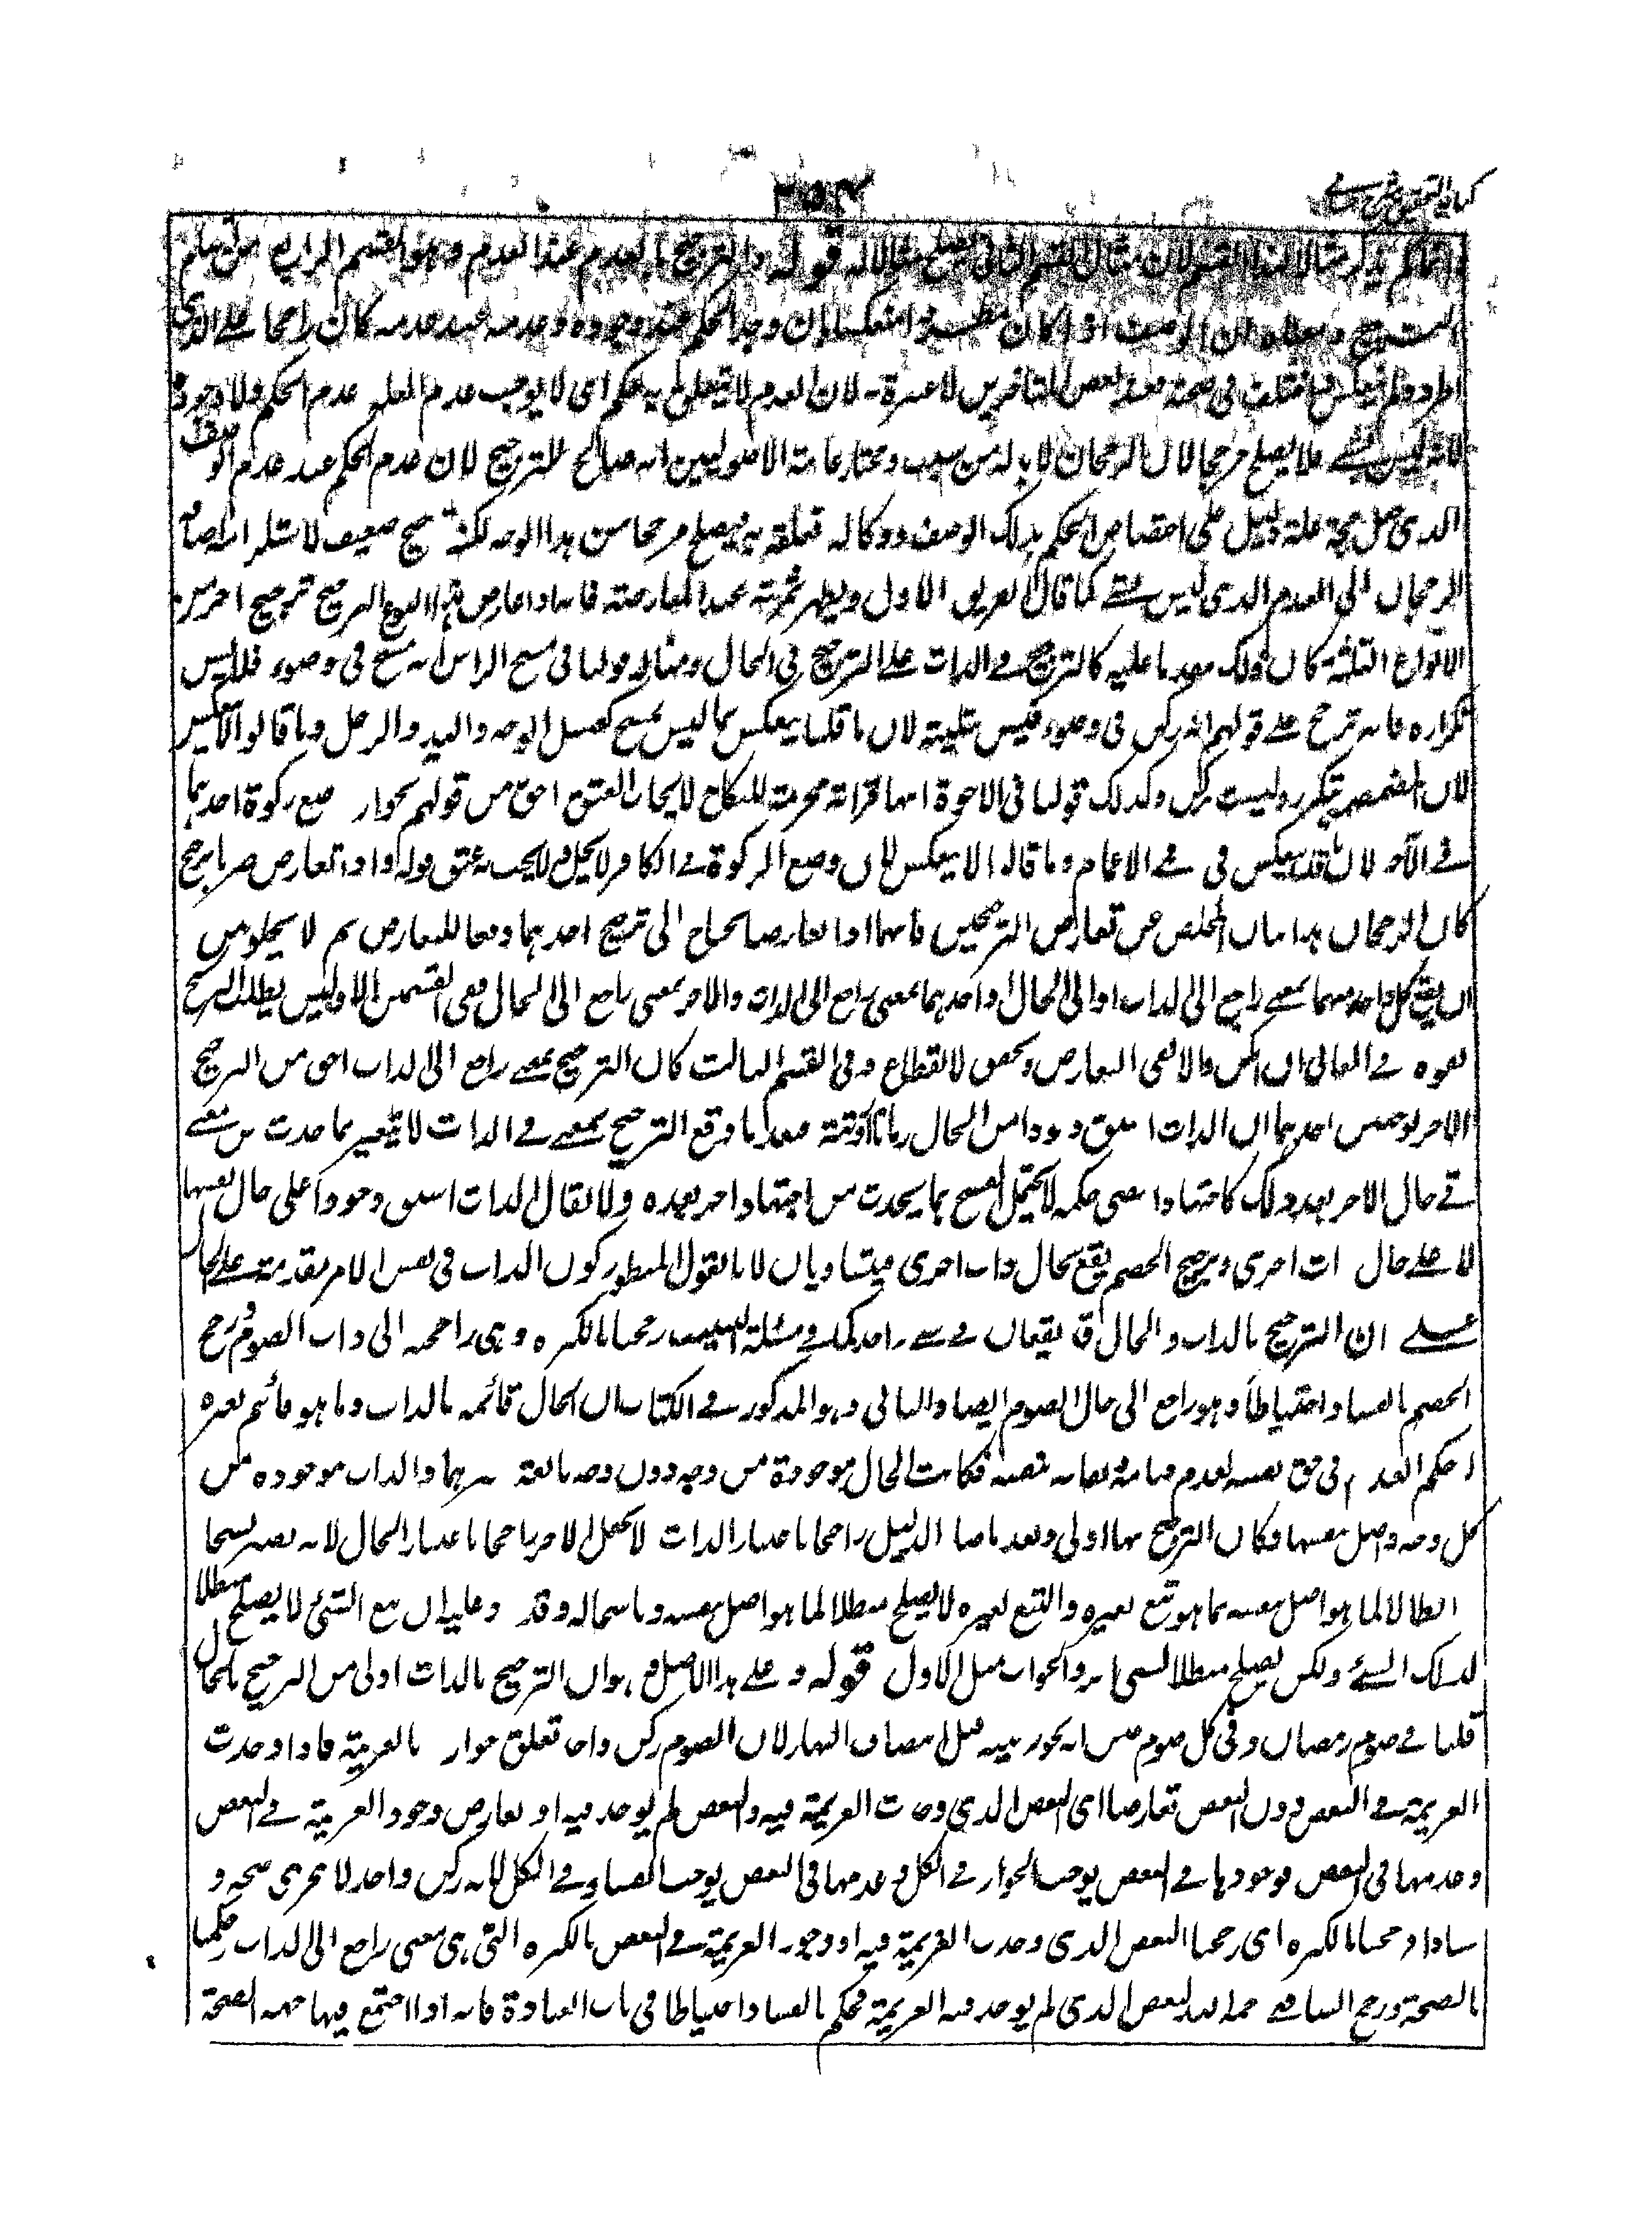 كتاب التحقيق شرح حسامي
٢٥٢
وانما لم يذكر مثالا لهذا القسم لان مثال القسم الثاني يصلح مثالا له قوله والترجيح بالعدم عند العدم وهو القسم الرابع من
الترجيح ومعناه ان الوصف اذا كان مطردا منعكسا بان وجد الحكم عند وجوده وعدمه عند عدمه كان راجحا على الذي
اطرد ولم ينعكس فاختلف في صحته فعند بعض المتاخرين لا عبرة لان العدم لا يتعلق به حكم اى لا يوجب عدم العلة عدم الحكم ولا وجوده
لانه ليس بشئ فلا يصلح مرجحا لان الرجحان لا بد له من سبب ومختار عامة الاصوليين انه صالح للترجيح لان عدم الحكم عند عدم الوصف
الذى جعل حجة علة دليل على اختصاص الحكم بذلك الوصف ووكالة تعلقه به فيصلح مرجحا من هذا الوجه لكنه ترجيح ضعيف لاستلزام اضافة
الرجحان الى العدم الذى ليس بشئ كما قال الفريق الاول ويظهر ثمرته عند المعارضة فانه اذا عارض هذا النوع الترجيح ترجيح اخر من
الانواع الثلثة كان ذلك مقدما عليه كالترجيح فى الذات على الترجيح فى الحال ومثاله قولنا فى مسح الراس انه مسح فى وضوء فلا يسن
تكراره فانه ترجح على قولهم انه ركن فى وضوء فيسن تثليثه لان ما قلنا ينعكس بما ليس بمسح كغسل الوجه واليد والرجل وما قالوا لا ينعكس
لان المضمضة يتكرر وليست بركن وكذلك قولنا فى الاخوة انها قرابة محرمة للنكاح لايجاب العتق احق من قولهم بجواز وضع زكوة احدهما
فى الآخر لان ما قلنا ينعكس فى بنى الاعمام وما قاله لا ينعكس لان وضع الزكوة فى الكافر لا يحل ولا يجب به عتق قوله واذا تعارض ضربا ترجيح
كان الرجحان هذا بيان المخلص عن تعارض الترجيحين فانهما اذا تعارضا احتاج الى ترجيح احدهما دفعا للتعارض ثم لا يخلو من
ان يقع كل واحد منهما بمعنى راجع الى الذات او الى الحال او احدهما بمعنى راجع الى الذات والاخر بمعنى راجع الى الحال ففى القسمين الاولين يطلب الترجيح
بقوة فى المعانى ان امكن والا بقى التعارض وتحقق الانقطاع وفى القسم الثالث كان الترجيح بمعنى راجع الى الذات احق من الترجيح
الاخر لوجهين احدهما ان الذات اسبق وجودا من الحال زمانا او رتبة فبعد ما وقع الترجيح بمعنى فى الذات لا يتغير بما حدث من معنى
فى حال الاخر بعد ذلك كاجتهاد امضى حكمه لا يحتمل الفسخ بما يحدث من اجتهاد اخر بعده ولا يقال الذات اسبق وجودا على حال نفسها
لا على حال ذات اخرى وترجيح الخصم يقع بحال ذات اخرى فيتساويان لانا نقول المنظور كون الذات فى نفس الامر مقدمة على الحال
على ان الترجيح بالذات والحال قد يقعان فى شئ واحد كما فى مسئلة التبييت رجحنا بالكثرة وهى راجعة الى ذات الصوم ورجح
الخصم بالفساد احتياطا وهو راجع الى حال الصوم ايضا والثانى وهو المذكور فى الكتاب ان الحال قائمة بالذات وما هو قائم بغيره
له حكم العدم فى حق نفسه لعدم قيامه وبقائه بنفسه فكانت الحال موجودة من وجه دون وجه تابعة لغيرها والذات موجودة من
كل وجه واصل بنفسها فكان الترجيح بها اولى وبعد ما صار الدليل راجحا باعتبار الذات لا يجعل الاخر راجحا باعتبار الحال لانه يصير نسخا
ابطالا لما هو اصل بنفسه بما هو تبع لغيره والتبع لغيره لا يصلح مبطلا لما هو اصل بنفسه وما سماله وقد وعليه ان تبع الشئ لا يصلح مبطلا
لذلك الشئ ولكن يصلح مبطلا لشئ اخر والجواب مثل الاول قوله وعلى هذا الاصل وهو ان الترجيح بالذات اولى من الترجيح بالحال
قلنا فى صوم رمضان وفى كل صوم عين انه يجوز بنيته قبل انتصاف النهار لان الصوم ركن واحد تعلق جوازه بالعزيمة فاذا وجدت
العزيمة فى البعض دون البعض تعارضا اى البعض الذى وجدت العزيمة فيه والبعض لم يوجد فيه او تعارض وجود العزيمة فى البعض
وعدمها فى البعض فوجودها فى البعض يوجب الجواز فى الكل وعدمها فى البعض يوجب الفساد فى الكل لانه ركن واحد لا يتجزى صحة و
فسادا ورجحنا بالكثرة اى رجحنا البعض الذى وجدت العزيمة فيه او وجود العزيمة فى البعض بالكثرة التى هى معنى راجع الى الذات حكمنا
بالصحة ورجح الشافعى رحمه الله البعض الذى لم يوجد فيه العزيمة فحكم بالفساد احتياطا فى باب العبادة فانه اذا اجتمع فيها جهة الصحة